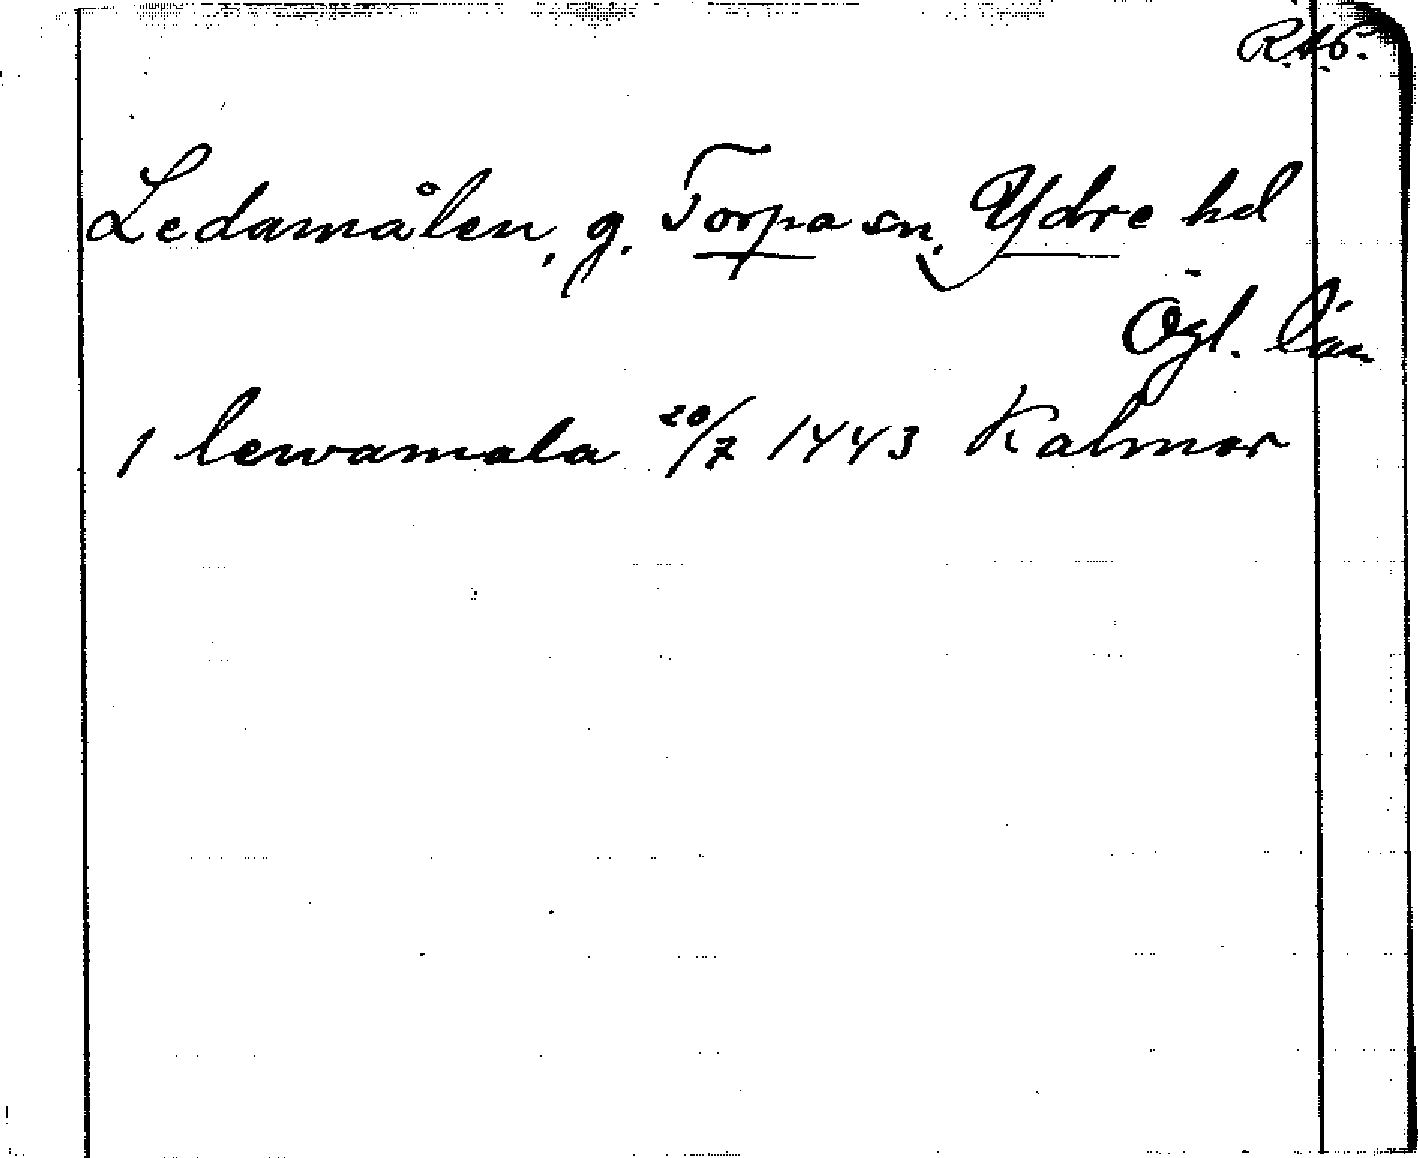 R.A.6.
Ledamålen, g. Torpa sn, Ydre hd
Ögl. län
1 lewamala 20/7 1443 Kalmar